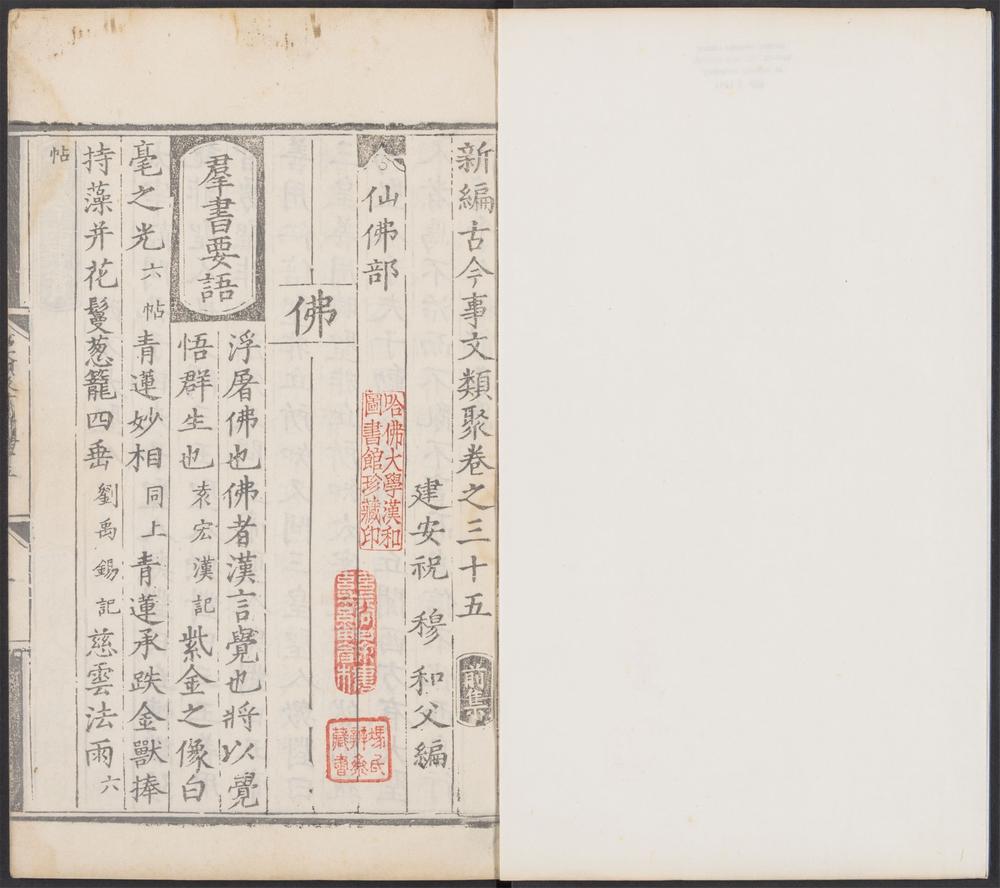 新編古今事文類聚卷之三十五 前集
建安祝 穆 和父編
仙佛部
佛
羣書要語
浮屠佛也佛者漢言覺也將以覺
悟群生也袁宏漢記紫金之像白
毫之光六帖青蓮妙相同上青蓮承趺金獸捧
持藻井花鬘葱籠四垂劉禹錫記慈雲法雨六
帖
哈佛大學漢和
圖書館珍藏印
藏書